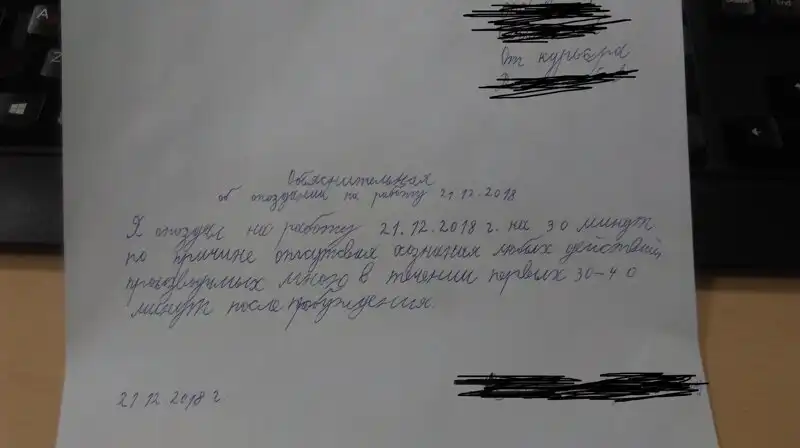 От курьера
Объяснительная
об опоздании на работу 21.12.2018
Я опоздал на работу 21.12.2018 г. на 30 минут
по причине отсутствия сознания любых действий,
производимых мною в течении первых 30-40
минут после пробуждения.
21 12 2018 г